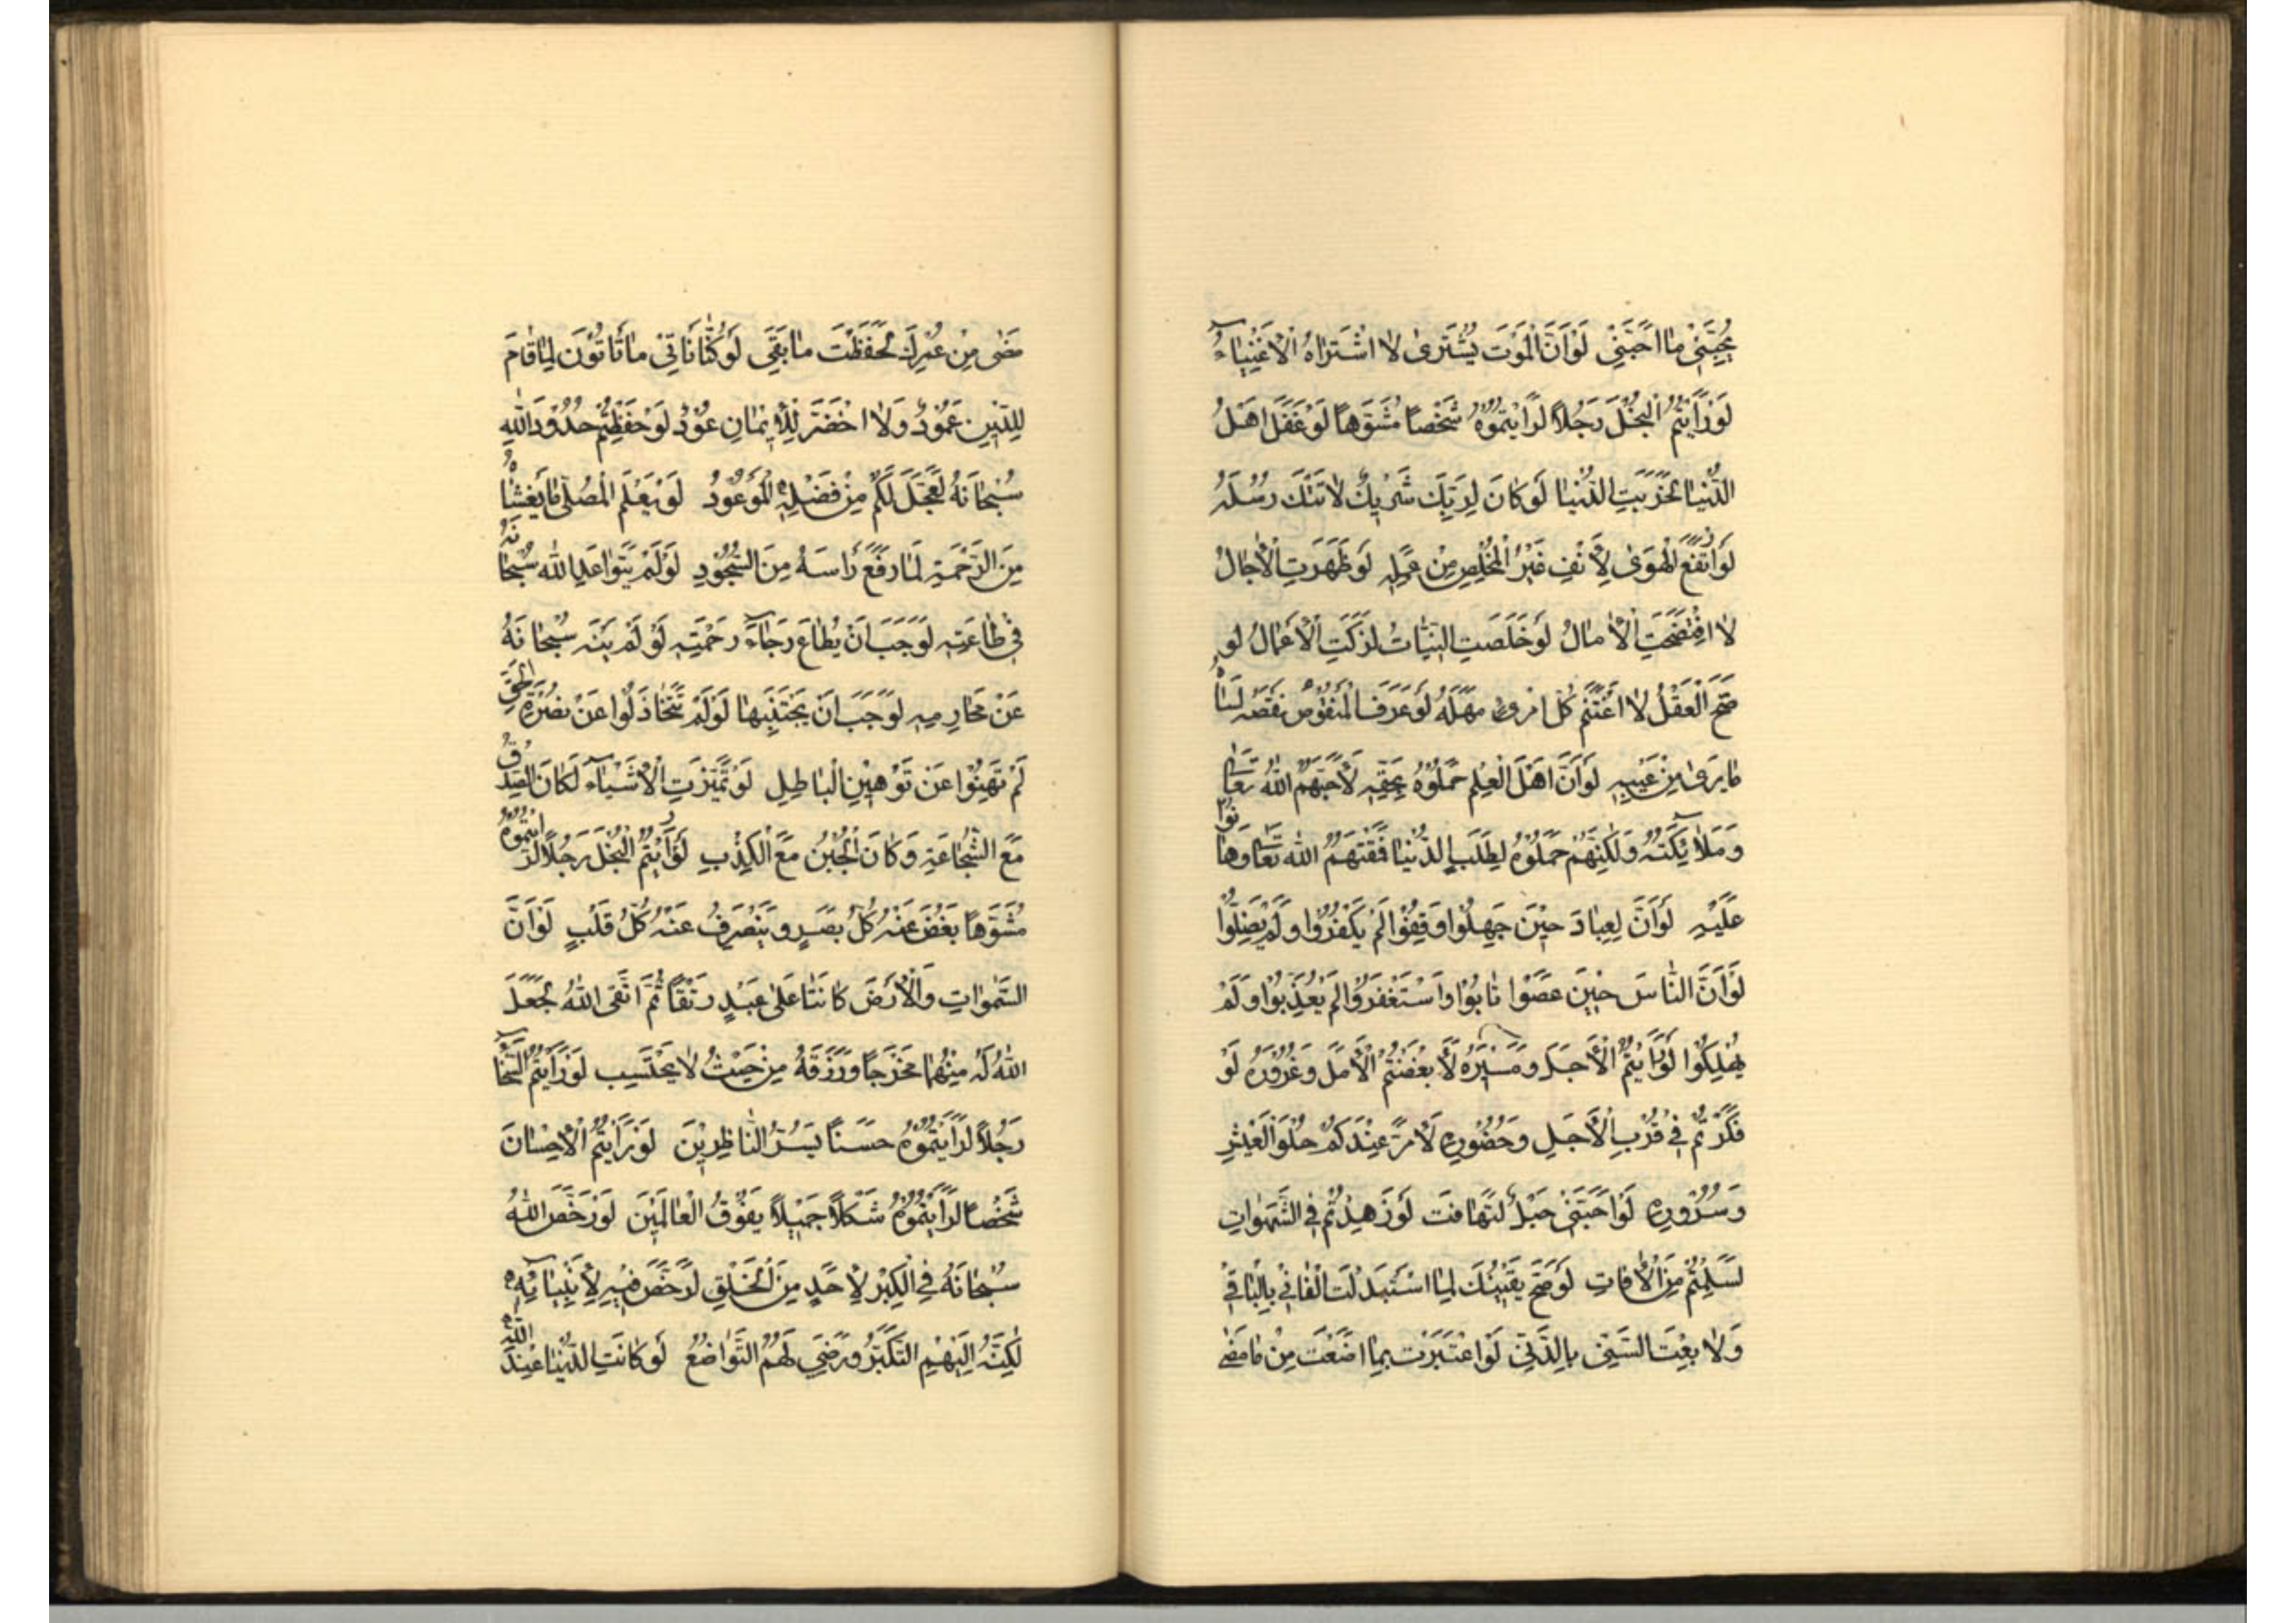 يُحِبَّنِي مَا اَحَبَّنِي لَوْ اَنَّ الْمَوْتَ يُشْتَرىٰ لَا اشْتَرَاهُ الْاَغْنِيَاءُ
لَوْ رَاَيْتُمُ الْبُخْلَ رَجُلًا لَرَاَيْتُمُوهُ شَخْصًا مُشَوَّهًا لَوْ عَقَلَ اَهْلُ
الدُّنْيَا لَخَرِبَتِ الدُّنْيَا لَوْ كَانَ لِرَبِّكَ شَرِيكٌ لَاَتَتْكَ رُسُلُهُ
لَوِ ارْتَفَعَ الْهَوىٰ لَاَنِفَ غَيْرُ الْمُخْلِصِ مِنْ عَمَلِهِ لَوْ ظَهَرَتِ الْاٰجَالُ
لَا افْتَضَحَتِ الْاٰمَالُ لَوْ خَلَصَتِ النِّيَّاتُ لَزَكَتِ الْاَعْمَالُ لَوْ
صَحَّ الْعَقْلُ لَا اغْتَنَمَ كُلُّ امْرِئٍ مَهَلَهُ لَوْ عَرَفَ الْمَنْقُوصُ نَقْصَهُ لَسَاءَهُ
مَا يَرىٰ مِنْ عَيْبِهِ لَوْ اَنَّ اَهْلَ الْعِلْمِ حَمَلُوهُ بِحَقِّهِ لَاَحَبَّهُمُ اللّٰهُ تَعَالىٰ
وَمَلَائِكَتُهُ وَلٰكِنَّهُمْ حَمَلُوهُ لِطَلَبِ الدُّنْيَا فَمَقَتَهُمُ اللّٰهُ تَعَالىٰ وَهَانُوا
عَلَيْهِ لَوْ اَنَّ لِعِبَادَ حِينَ جَهِلُوا وَقَفُوا لَمْ يَكْفُرُوا وَلَمْ يَضِلُّوا
لَوْ اَنَّ النَّاسَ حِينَ عَصَوْا تَابُوا وَاسْتَغْفَرُوا لَمْ يُعَذَّبُوا وَلَمْ
يُهْلَكُوا لَوْ رَاَيْتُمُ الْاَجَلَ وَمَسِيرَهُ لَاَبْغَضْتُمُ الْاَمَلَ وَغُرُورَهُ لَوْ
فَكَّرْتُمْ فِي قُرْبِ الْاَجَلِ وَحُضُورِهِ لَاَمَرَّ عِنْدَكُمْ حُلْوُ الْعَيْشِ
وَسُرُورِهِ لَوْ اَحَبَّنِي جَبَلٌ لَتَهَافَتَ لَوْ زَهِدْتُمْ فِي الشَّهَوَاتِ
لَسَلِمْتُمْ مِنَ الْاٰفَاتِ لَوْ صَحَّ يَقِينُكَ لَمَا اسْتَبْدَلْتَ الْفَانِيَ بِالْبَاقِي
وَلَا بِعْتَ السَّنِيَّ بِالدَّنِيِّ لَوِ اعْتَبَرْتَ بِمَا اَضَعْتَ مِنْ مَا مَضىٰ
مَضىٰ مِنْ عُمْرِكَ لَحَفِظْتَ مَا بَقِيَ لَوْ كُنَّا نَاْتِي مَا تَاْتُونَ لَمَا قَامَ
لِلدِّينِ عَمُودٌ وَلَا اخْضَرَّ لِلْاِيمَانِ عُودٌ لَوْ حَفِظْتُمْ حُدُودَ اللّٰهِ
سُبْحَانَهُ لَعَجَّلَ لَكُمْ مِنْ فَضْلِهِ الْمَوْعُودُ لَوْ يَعْلَمُ الْمُصَلِّي مَا يَغْشَاهُ
مِنَ الرَّحْمَةِ لَمَا رَفَعَ رَاْسَهُ مِنَ السُّجُودِ لَوْ لَمْ يَتَوَاعَدِ اللّٰهُ سُبْحَانَهُ
فِي طَاعَتِهِ لَوَجَبَ اَنْ يُطَاعَ رَجَاءَ رَحْمَتِهِ لَوْ لَمْ يَنْهَ سُبْحَانَهُ
عَنْ مَحَارِمِهِ لَوَجَبَ اَنْ يَجْتَنِبَهَا لَوْ لَمْ تَتَخَاذَلُوا عَنْ نُصْرَةِ الْحَقِّ
لَمْ تَهِنُوا عَنْ تَوْهِينِ الْبَاطِلِ لَوْ تَمَيَّزَتِ الْاَشْيَاءُ لَكَانَ الصِّدْقُ
مَعَ الشَّجَاعَةِ وَكَانَ الْجُبْنُ مَعَ الْكِذْبِ لَوْ رَاَيْتُمُ الْبُخْلَ رَجُلًا لَرَاَيْتُمُوهُ
مُشَوَّهًا يَغُضُّ عَنْهُ كُلُّ بَصَرٍ وَيَنْصَرِفُ عَنْهُ كُلُّ قَلْبٍ لَوْ اَنَّ
السَّمٰوَاتِ وَالْاَرْضَ كَانَتَا عَلىٰ عَبْدٍ رَتْقًا ثُمَّ اتَّقَى اللّٰهَ لَجَعَلَ
اللّٰهُ لَهُ مِنْهُمَا مَخْرَجًا وَرَزَقَهُ مِنْ حَيْثُ لَا يَحْتَسِبُ لَوْ رَاَيْتُمُ السَّخَاءَ
رَجُلًا لَرَاَيْتُمُوهُ حَسَنًا يَسُرُّ النَّاظِرِينَ لَوْ رَاَيْتُمُ الْاِحْسَانَ
شَخْصًا لَرَاَيْتُمُوهُ شَكْلًا جَمِيلًا يَفُوقُ الْعَالَمِينَ لَوْ رَخَّصَ اللّٰهُ
سُبْحَانَهُ فِي الْكِبْرِ لِاَحَدٍ مِنَ الْخَلْقِ لَرَخَّصَ فِيهِ لِاَنْبِيَائِهِ
لٰكِنَّهُ اِلَيْهِمُ التَّكَبُّرَ وَرَضِيَ لَهُمُ التَّوَاضُعَ لَوْ كَانَتِ الدُّنْيَا عِنْدَ اللّٰهِ